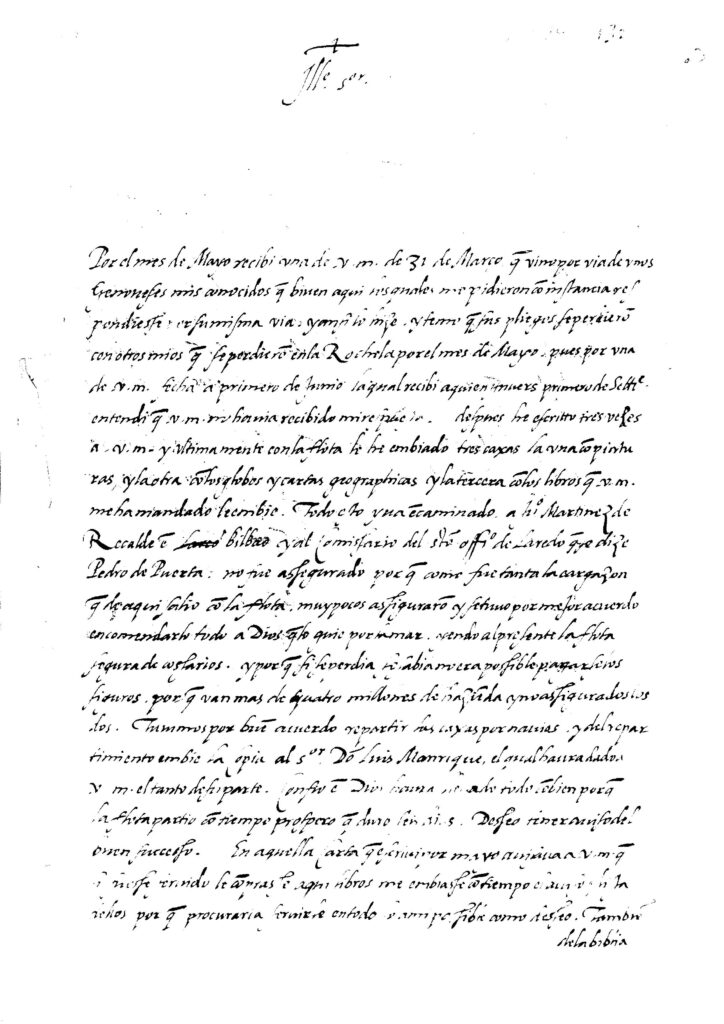 Ille. sor.
Por el mes de Mayo recibi una de v. m. de 31 de Março q̃ vino por via de unos
Genoveses mis conocidos q̃ biven aqui los quales me pidieron cõ instancia res
pondiesse por su misma via, y ansi lo hize, y temo q̃ sus pliegos se perdierõ
con otros mios q̃ se perdierõ en la Rochela por el mes de Mayo, pues por una
de v. m. fecha a primero de Junio la qual recibi aqui en Anvers primero de Sette.
entendi q̃ v. m. no havia recibido mi respuesta. despues he escritto tres vezes
a v. m. y ultimamente con la flota le he embiado tres caxas la una cõ pintu
ras, y la otra cõ los globos y cartas geographicas y la tercera cõ los libros q̃ v. m.
me ha mandado le embie. Todo esto yva encaminado a Jo. Martinez de
Recalde ẽ bilbao y al Comissario del sto. offio. de Laredo que se dize
Pedro de Puerta: no fue assegurado por q̃ como fue tanta la cargazon
q̃ de aqui salio cõ la flota, muy pocos assiguraron y se tuvo por mejor acuerdo
encomendarlo todo a Dios por la mar, yendo al presente la flota
segura de cossarios. y por q̃ si se perdia tãbien era possible pagarse los
siguros, por q̃ van mas de quatro millones de hazienda y no assigurados to
dos. Tuvimos por buẽ acuerdo repartir las caxas por navios, y del repar
timiento embie la copia al sor. Dõ Luis Manrique, el qual havra dado a
v. m. el tanto de su parte. Confio ẽ Dios havra llegado todo ẽ bien porq̃
la flota partio cõ tiempo prospero q̃ duro dias. Desseo tener aviso del
buen successo. En aquella carta q̃ escrivi por mayo avisava a v. m. q̃
si fuesse servido le comprasse aqui libros me embiasse cõ tiempo
dellos por q̃ procuraria servirle en todo como desseo. Tambiẽ
de la biblia